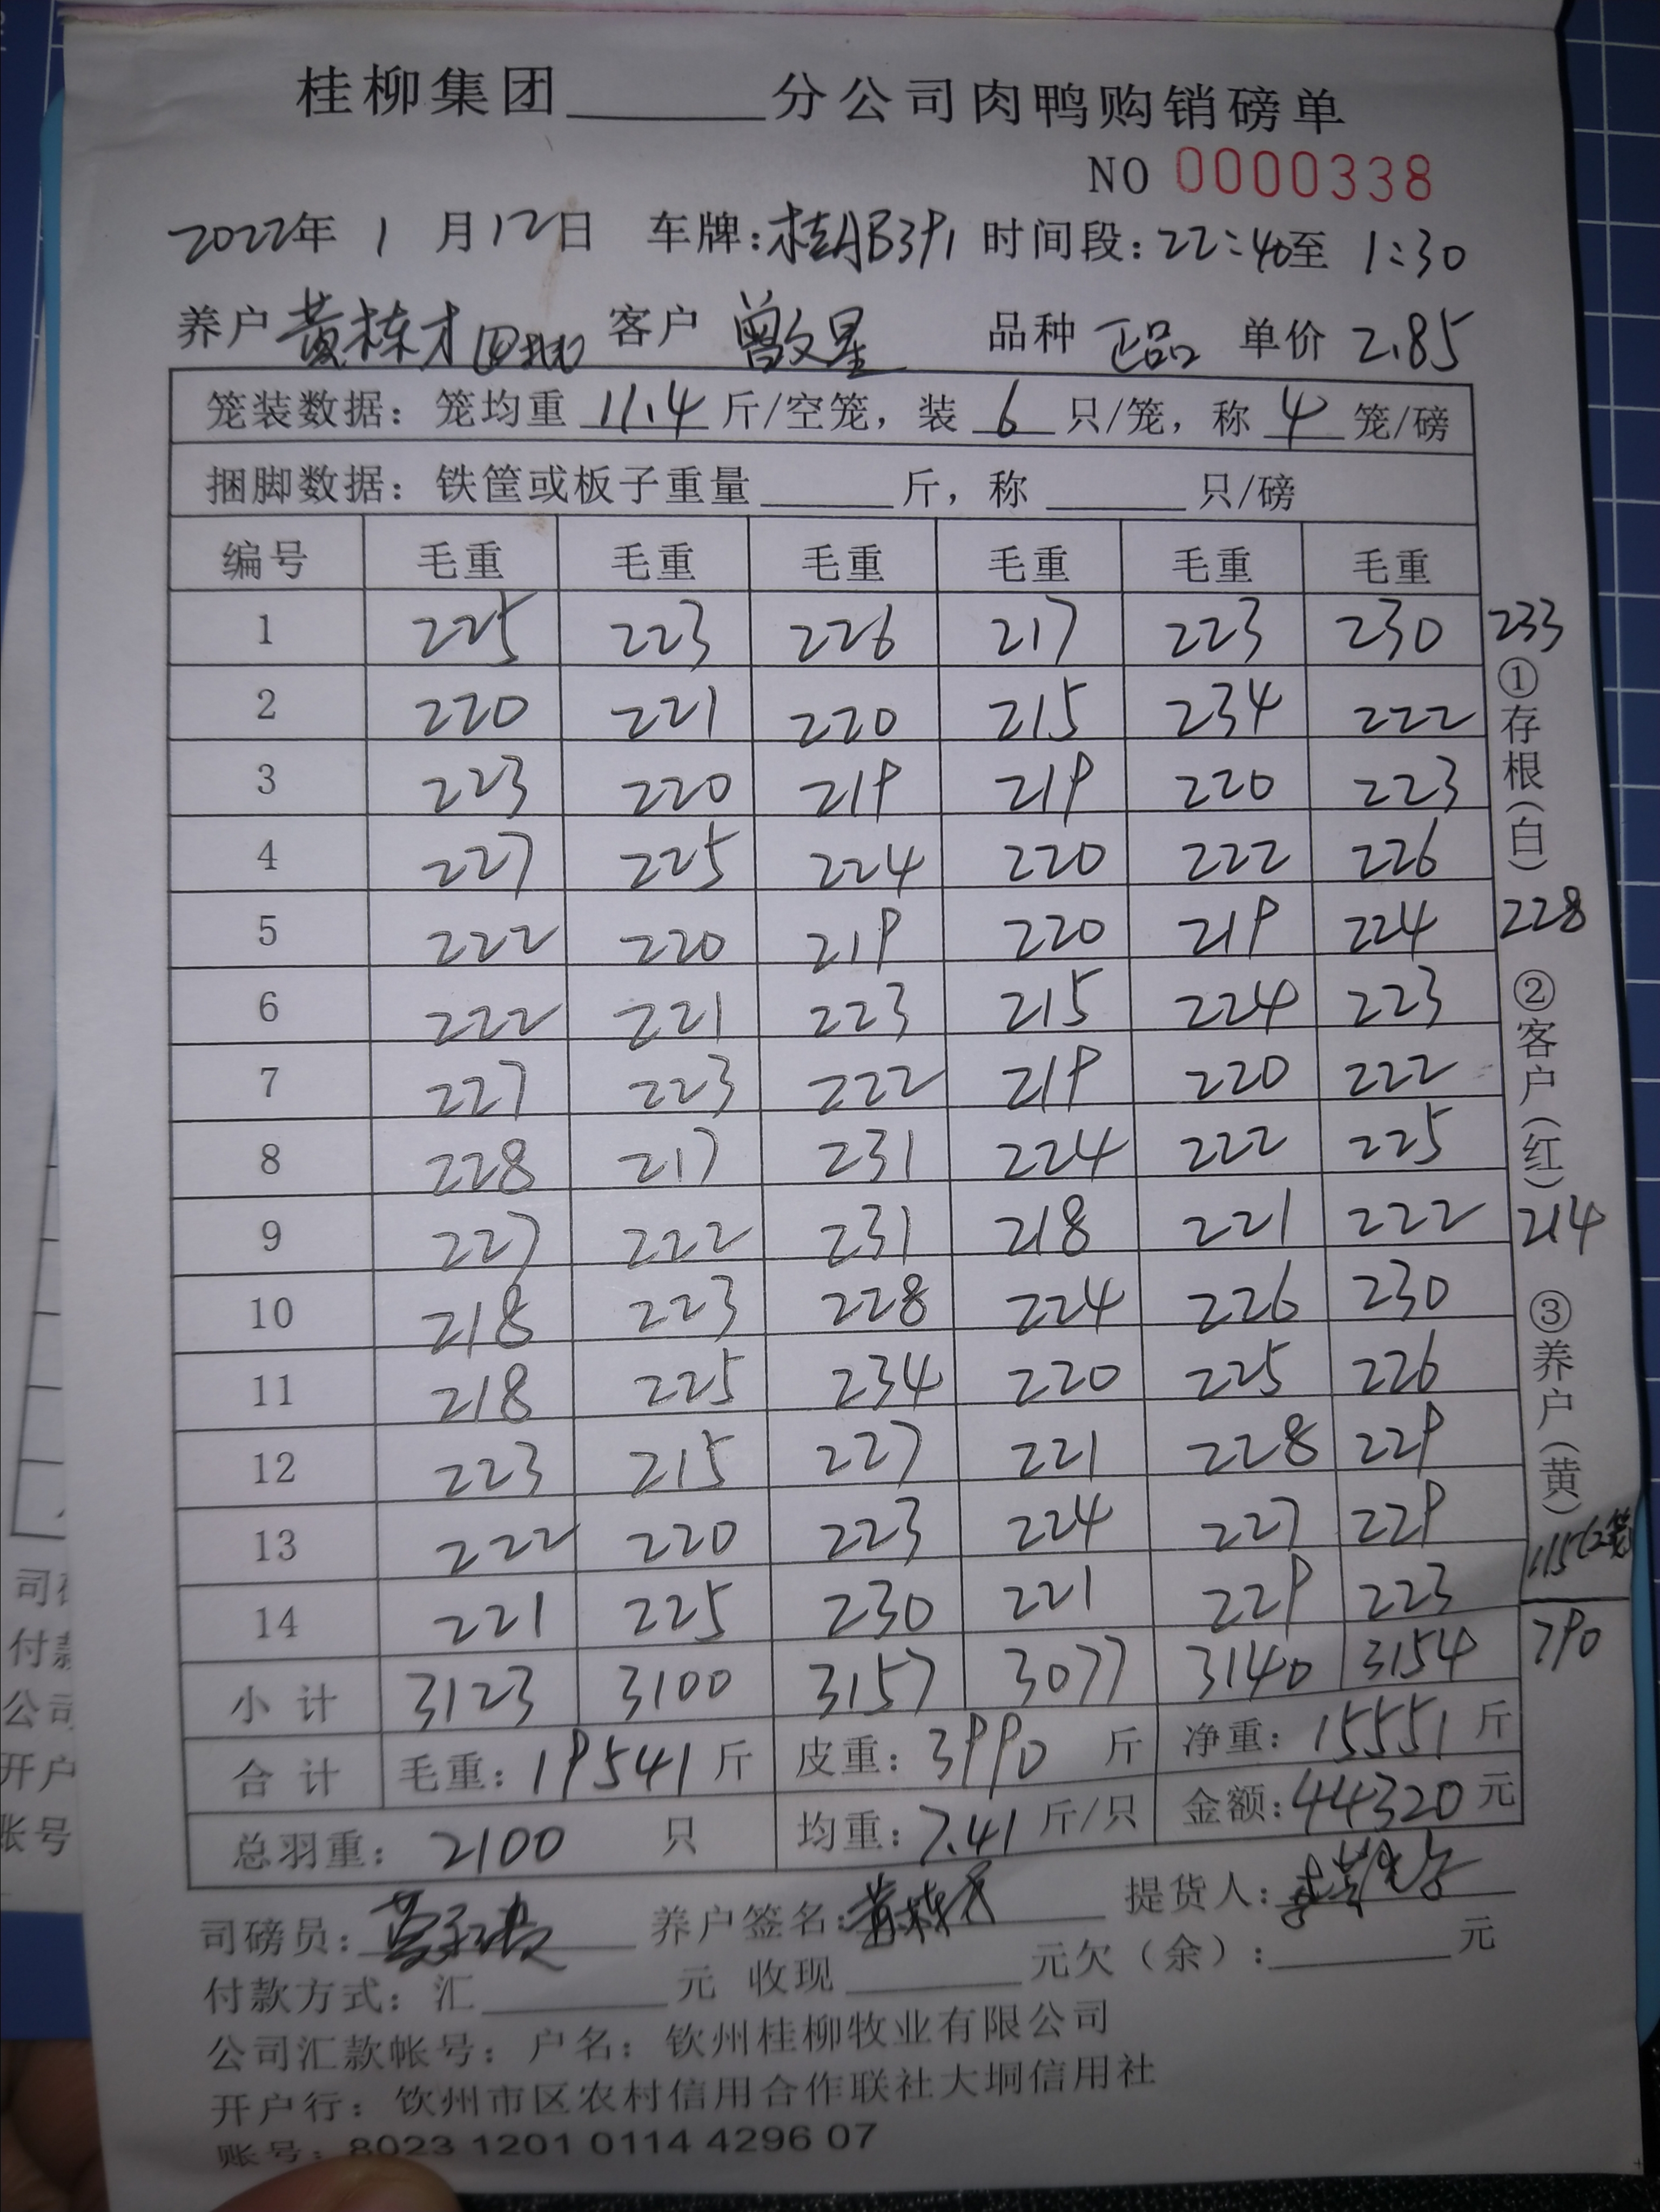 桂柳集团______分公司肉鸭购销磅单
NO 0000338
2022年 1 月12日 车牌:桂AB391 时间段:22:40至 1:30
养户 黄栋才 四批 客户 曾文星 品种 正品 单价 2.85
笼装数据: 笼均重 11.4 斤/空笼, 装 6 只/笼, 称 4 笼/磅
捆脚数据: 铁筐或板子重量______斤, 称______只/磅
编号 毛重 毛重 毛重 毛重 毛重 毛重
1 225 223 226 217 223 230 233
2 220 221 220 215 234 222
3 223 220 219 219 220 223
4 227 225 224 220 222 226
5 222 220 219 220 219 224 228
6 222 221 223 215 224 223
7 227 223 222 219 220 222
8 228 217 231 224 222 225
9 227 222 231 218 221 222 214
10 218 223 228 224 226 230
11 218 225 234 220 225 226
12 223 215 227 221 228 229
13 222 220 223 224 227 229 115(2笼)
14 221 225 230 221 229 223
小计 3123 3100 3157 3077 3140 3154 790
合计 毛重: 19541 斤 皮重: 3990 斤 净重: 15551 斤
总羽重: 2100 只 均重: 7.41 斤/只 金额: 44320 元
①存根(白) ②客户(红) ③养户(黄)
司磅员: 养户签名: 黄栋才 提货人:
付款方式: 汇______元 收现______元欠(余):______元
公司汇款帐号: 户名: 钦州桂柳牧业有限公司
开户行: 钦州市区农村信用合作联社大垌信用社
账号: 8023 1201 0114 4296 07
司
付款
公司
开户
账号